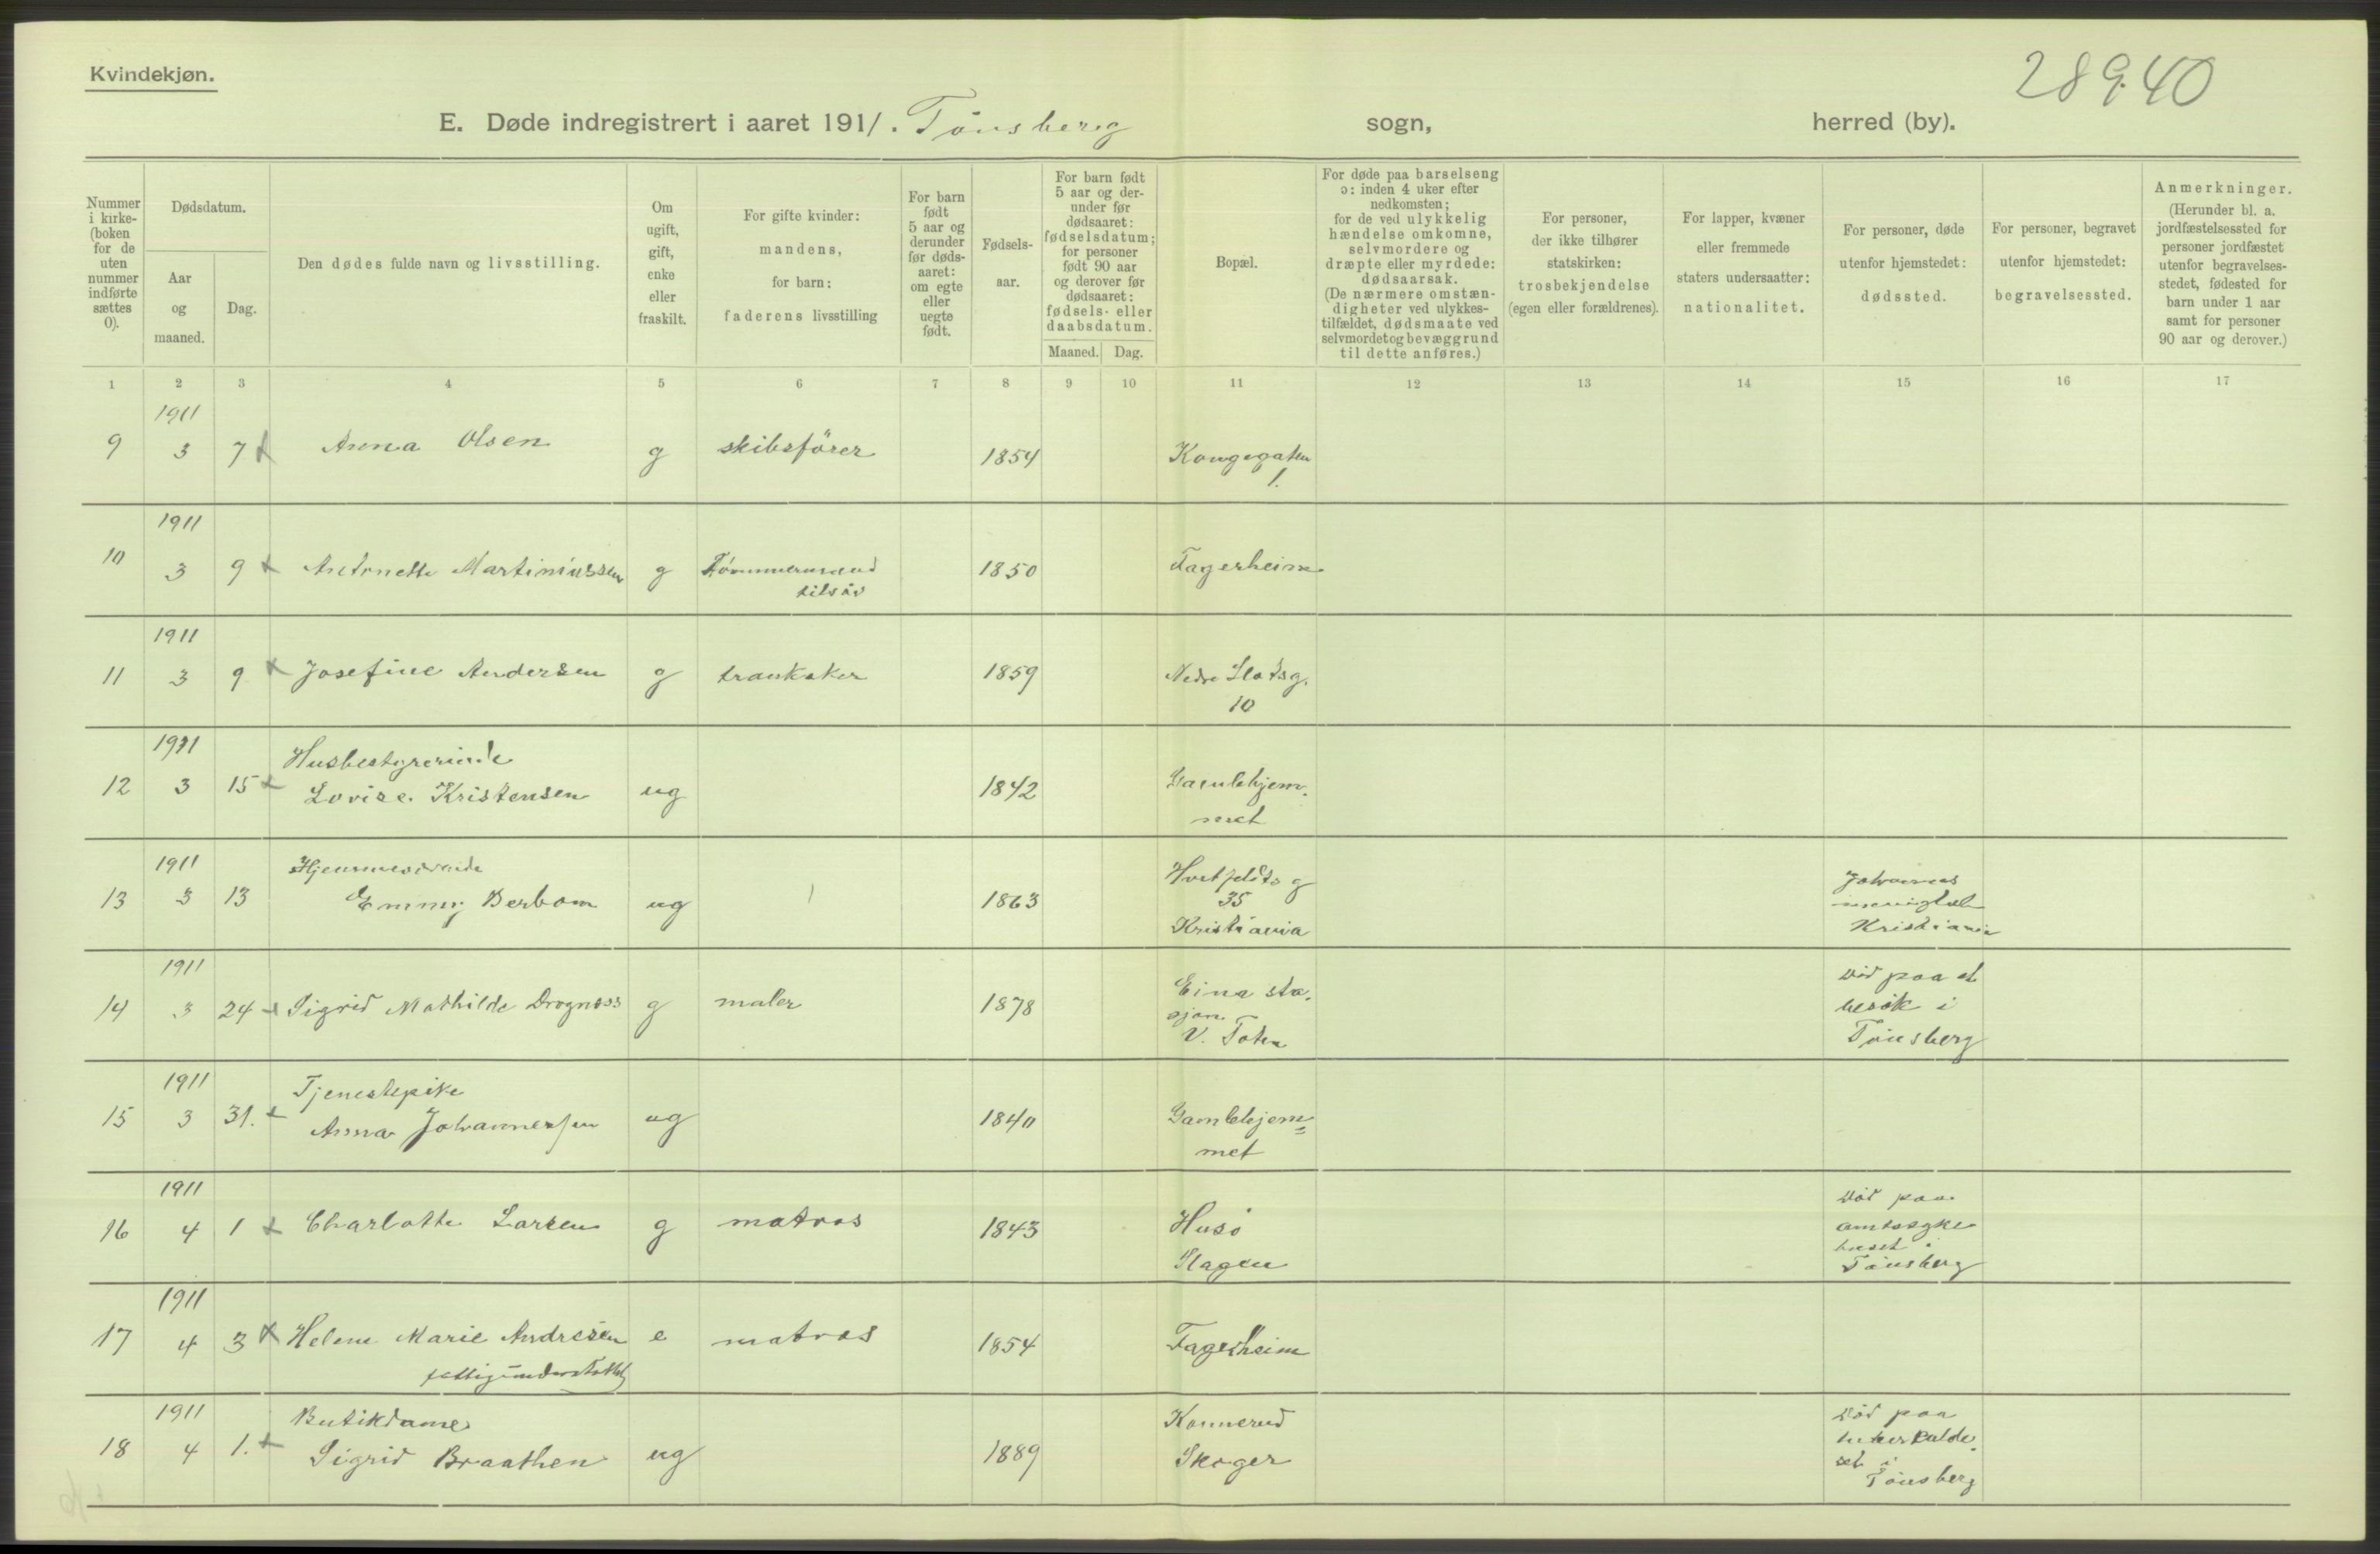 Kvindekjøn.
28940
E. Døde indregistrert i aaret 1911. Tönsberg sogn, herred (by).
Nummer
i kirke-
(boken
for de
uten
nummer
indførte
sættes
0).
Dødsdatum.
Aar
og
maaned.
Dag.
Den dødes fulde navn og livsstilling.
Om
ugift,
gift,
enke
eller
fraskilt.
For gifte kvinder:
mandens,
for barn:
faderens livsstilling
For barn
født
5 aar og
derunder
før døds-
aaret:
om egte
eller
uegte
født.
Fødsels-
aar.
For barn født
5 aar og der-
under før
dødsaaret:
fødselsdatum;
for personer
født 90 aar
og derover før
dødsaaret:
fødsels- eller
daabsdatum.
Maaned. Dag.
Bopæl.
For døde paa barselseng
ɔ: inden 4 uker efter
nedkomsten;
for de ved ulykkelig
hændelse omkomne,
selvmordere og
dræpte eller myrdede:
dødsaarsak.
(De nærmere omstæn-
digheter ved ulykkes-
tilfældet, dødsmaate ved
selvmordet og bevæggrund
til dette anføres.)
For personer,
der ikke tilhører
statskirken:
trosbekjendelse
(egen eller forældrenes).
For lapper, kvæner
eller fremmede
staters undersaatter:
nationalitet.
For personer, døde
utenfor hjemstedet:
dødssted.
For personer, begravet
utenfor hjemstedet:
begravelsessted.
Anmerkninger.
(Herunder bl. a.
jordfæstelsessted for
personer jordfæstet
utenfor begravelses-
stedet, fødested for
barn under 1 aar
samt for personer
90 aar og derover.)
1 2 3 4 5 6 7 8 9 10 11 12 13 14 15 16 17
1911
9 3 7 Anna Olsen g skibsförer 1854 Kongegaten
1.
1911
10 3 9 Antonette Martiniussen g Tömmermand 1850 Fagerheim
1911
11 3 9 Josefine Andersen g trankoker 1859 Nedre Slotsg.
10
1911
Husbestyrerinde
12 3 15 Lovise Kristensen ug 1842 Gamlehjem-
met
1911
Hjemmeværende
13 3 13 Emmy Berbom ug 1863
35
Kristiania
Johannes
Kristiania
1911
14 3 24 Sigrid Mathilde Drognæss g maler 1878 Eina sta-
sjon
V. Toten
Död paa et
besök i
Tönsberg
1911
Tjenestepike
15 3 31. Anna Johannessen ug 1840 Gamlehjem=
met
1911
16 4 1 Charlotte Larsen g matros 1843 Husö
Slagen
Död paa
amtssyke
huset i
Tönsberg
1911
17 4 3 Helene Marie Andresen e matros 1854 Fagerheim
fattigunderstöttet
1911
Butikdame
18 4 1. Sigrid Braathen ug 1889 Konnerud
Skoger
Död paa
tuberkulde
set i
Tönsberg